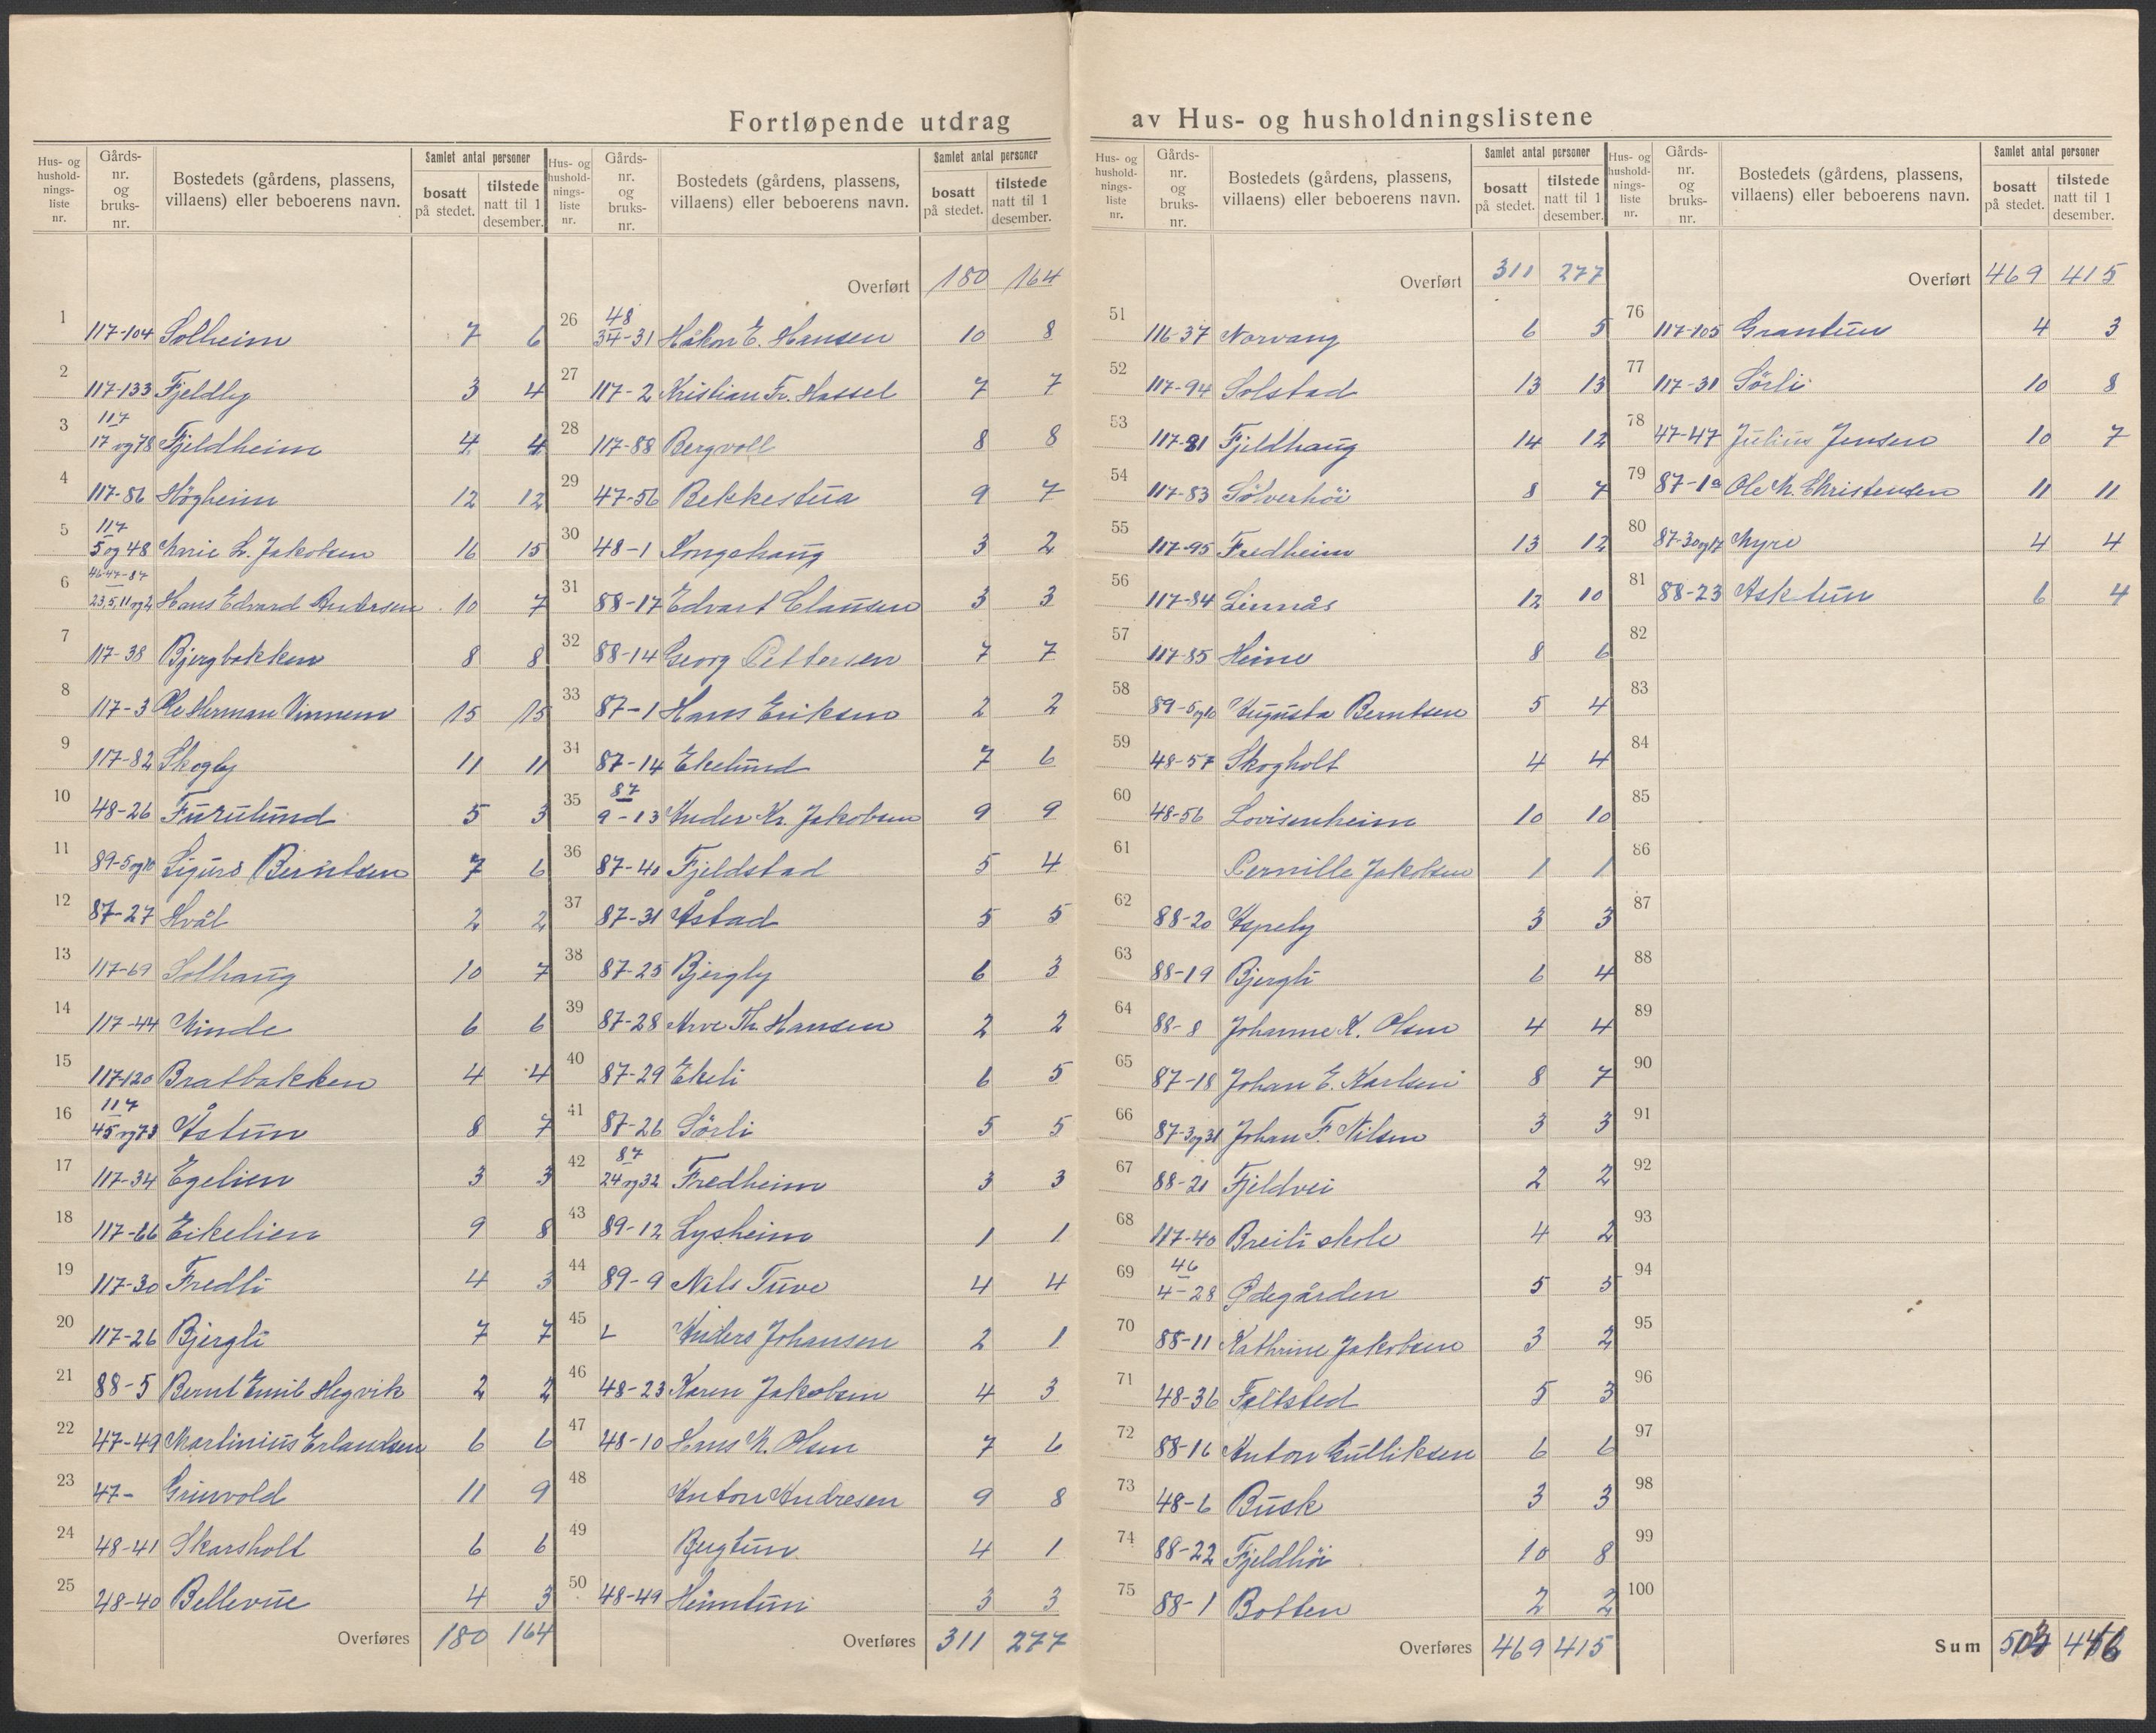 Fortløpende utdrag av Hus- og husholdningslistene
Hus- og husholdningsliste nr. | Gårds-nr. og bruks-nr. | Bostedets (gårdens, plassens, villaens) eller beboerens navn. | Samlet antal personer bosatt på stedet. | tilstede natt til 1 desember.
1 117-104 Solheim 7 6
2 117-133 Fjeldly 3 4
3 117 17 og 78 Fjeldheim 4 4
4 117-86 Högheim 12 12
5 117 5 og 48 Marie L. Jakobsen 16 15
6 46-47-87 23,5,11 og 2 Hans Edvard Andersen 10 7
7 117-38 Bjergbakken 8 8
8 117-3 Ole Herman Vinnem 15 15
9 117-82 Skogly 11 11
10 48-26 Furulund 5 3
11 89-5og10 Sigurd Berntsen 7 6
12 87-27 Hvål 2 2
13 117-69 Solhaug 10 7
14 117-44 Minde 6 6
15 117-120 Bratbakken 4 4
16 117 45 og 73 Åstun 8 7
17 117-34 Egelien 3 3
18 117-66 Eikelien 9 8
19 117-30 Fredli 4 3
20 117-26 Bjergli 7 7
21 88-5 Bernt Emil Hegvik 2 2
22 47-49 Martinius Erlandsen 6 6
23 47- Grinvold 11 9
24 48-41 Skarsholt 6 6
25 48-40 Bellevue 4 3
Overføres 180 164
Hus- og husholdningsliste nr. | Gårds-nr. og bruks-nr. | Bostedets (gårdens, plassens, villaens) eller beboerens navn. | Samlet antal personer bosatt på stedet. | tilstede natt til 1 desember.
Overført 180 164
26 48 34-31 Håkon E. Hansen 10 8
27 117-2 Kristian Fr. Hassel 7 7
28 117-88 Bergvoll 8 8
29 47-56 Bekkestua 9 7
30 48-1 Longehaug 3 2
31 88-17 Edvart Clausen 3 3
32 88-14 Georg Pettersen 7 7
33 87-1 Hans Eriksen 2 2
34 87-14 Ekelund 7 6
35 87 9-13 Anders Kr. Jakobsen 9 9
36 87-40 Fjeldstad 5 4
37 87-31 Åstad 5 5
38 87-25 Bjergly 6 3
39 87-28 Arve Th. Hansen 2 2
40 87-29 Ekeli 6 5
41 87-26 Sörli 5 5
42 87 24 og 32 Fredheim 3 3
43 89-12 Lysheim 1 1
44 89-9 Nils Tuve 4 4
45 Anders Johansen 2 1
46 48-23 Karen Jakobsen 4 3
47 48-10 Hans M. Olsen 7 6
48 Anton Andresen 9 8
49 Bergtun 4 1
50 48-49 Heimtun 3 3
Overføres 311 277
Hus- og husholdningsliste nr. | Gårds-nr. og bruks-nr. | Bostedets (gårdens, plassens, villaens) eller beboerens navn. | Samlet antal personer bosatt på stedet. | tilstede natt til 1 desember.
Overført 311 277
51 116-37 Norvang 6 5
52 117-94 Solstad 13 13
53 117-81 Fjeldhaug 14 12
54 117-83 Sölverhöi 8 7
55 117-95 Fredheim 13 12
56 117-84 Linnås 12 10
57 117-85 Heine 8 6
58 89-5og10 Augusta Berntsen 5 4
59 48-57 Skogholt 4 4
60 48-56 Lovisenheim 10 10
61 Pernille Jakobsen 1 1
62 88-20 Aspely 3 3
63 88-19 Bjergli 6 4
64 88-8 Johanne K. Olsen 4 4
65 87-18 Johan E. Karlsen 8 7
66 87-3og31 Johan F. Nilsen 3 3
67 88-21 Fjeldvei 2 2
68 117-40 Breili skole 4 2
69 46 4-28 Ødegården 5 5
70 88-11 Kathrine Jakobsen 3 2
71 48-36 Feltsted 5 3
72 88-16 Anton Gulliksen 6 6
73 48-6 Busk 3 3
74 88-22 Fjeldhöi 10 8
75 88-1 Botten 2 2
Overføres 469 415
Hus- og husholdningsliste nr. | Gårds-nr. og bruks-nr. | Bostedets (gårdens, plassens, villaens) eller beboerens navn. | Samlet antal personer bosatt på stedet. | tilstede natt til 1 desember.
Overført 469 415
76 117-105 Grantun 4 3
77 117-31 Sörli 10 8
78 47-47 Julius Jensen 10 7
79 87-1a Ole M. Christensen 11 11
80 87-30og17 Myre 4 4
81 88-23 Asktun 6 4
82
83
84
85
86
87
88
89
90
91
92
93
94
95
96
97
98
99
100
Sum